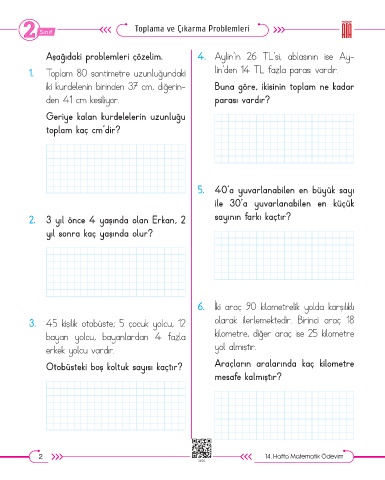 2. Sınıf
Toplama ve Çıkarma Problemleri
Aşağıdaki problemleri çözelim.
1. Toplam 80 santimetre uzunluğundaki
iki kurdelenin birinden 37 cm, diğerin-
den 41 cm kesiliyor.
Geriye kalan kurdelelerin uzunluğu
toplam kaç cm'dir?
2. 3 yıl önce 4 yaşında olan Erkan, 2
yıl sonra kaç yaşında olur?
3. 45 kişilik otobüste; 5 çocuk yolcu, 12
bayan yolcu, bayanlardan 4 fazla
erkek yolcu vardır.
Otobüsteki boş koltuk sayısı kaçtır?
4. Aylin'in 26 TL'si, ablasının ise Ay-
lin'den 14 TL fazla parası vardır.
Buna göre, ikisinin toplam ne kadar
parası vardır?
5. 40'a yuvarlanabilen en büyük sayı
ile 30'a yuvarlanabilen en küçük
sayının farkı kaçtır?
6. İki araç 90 kilometrelik yolda karşılıklı
olarak ilerlemektedir. Birinci araç 18
kilometre, diğer araç ise 25 kilometre
yol almıştır.
Araçların aralarında kaç kilometre
mesafe kalmıştır?
2
14. Hafta Matematik Ödevim